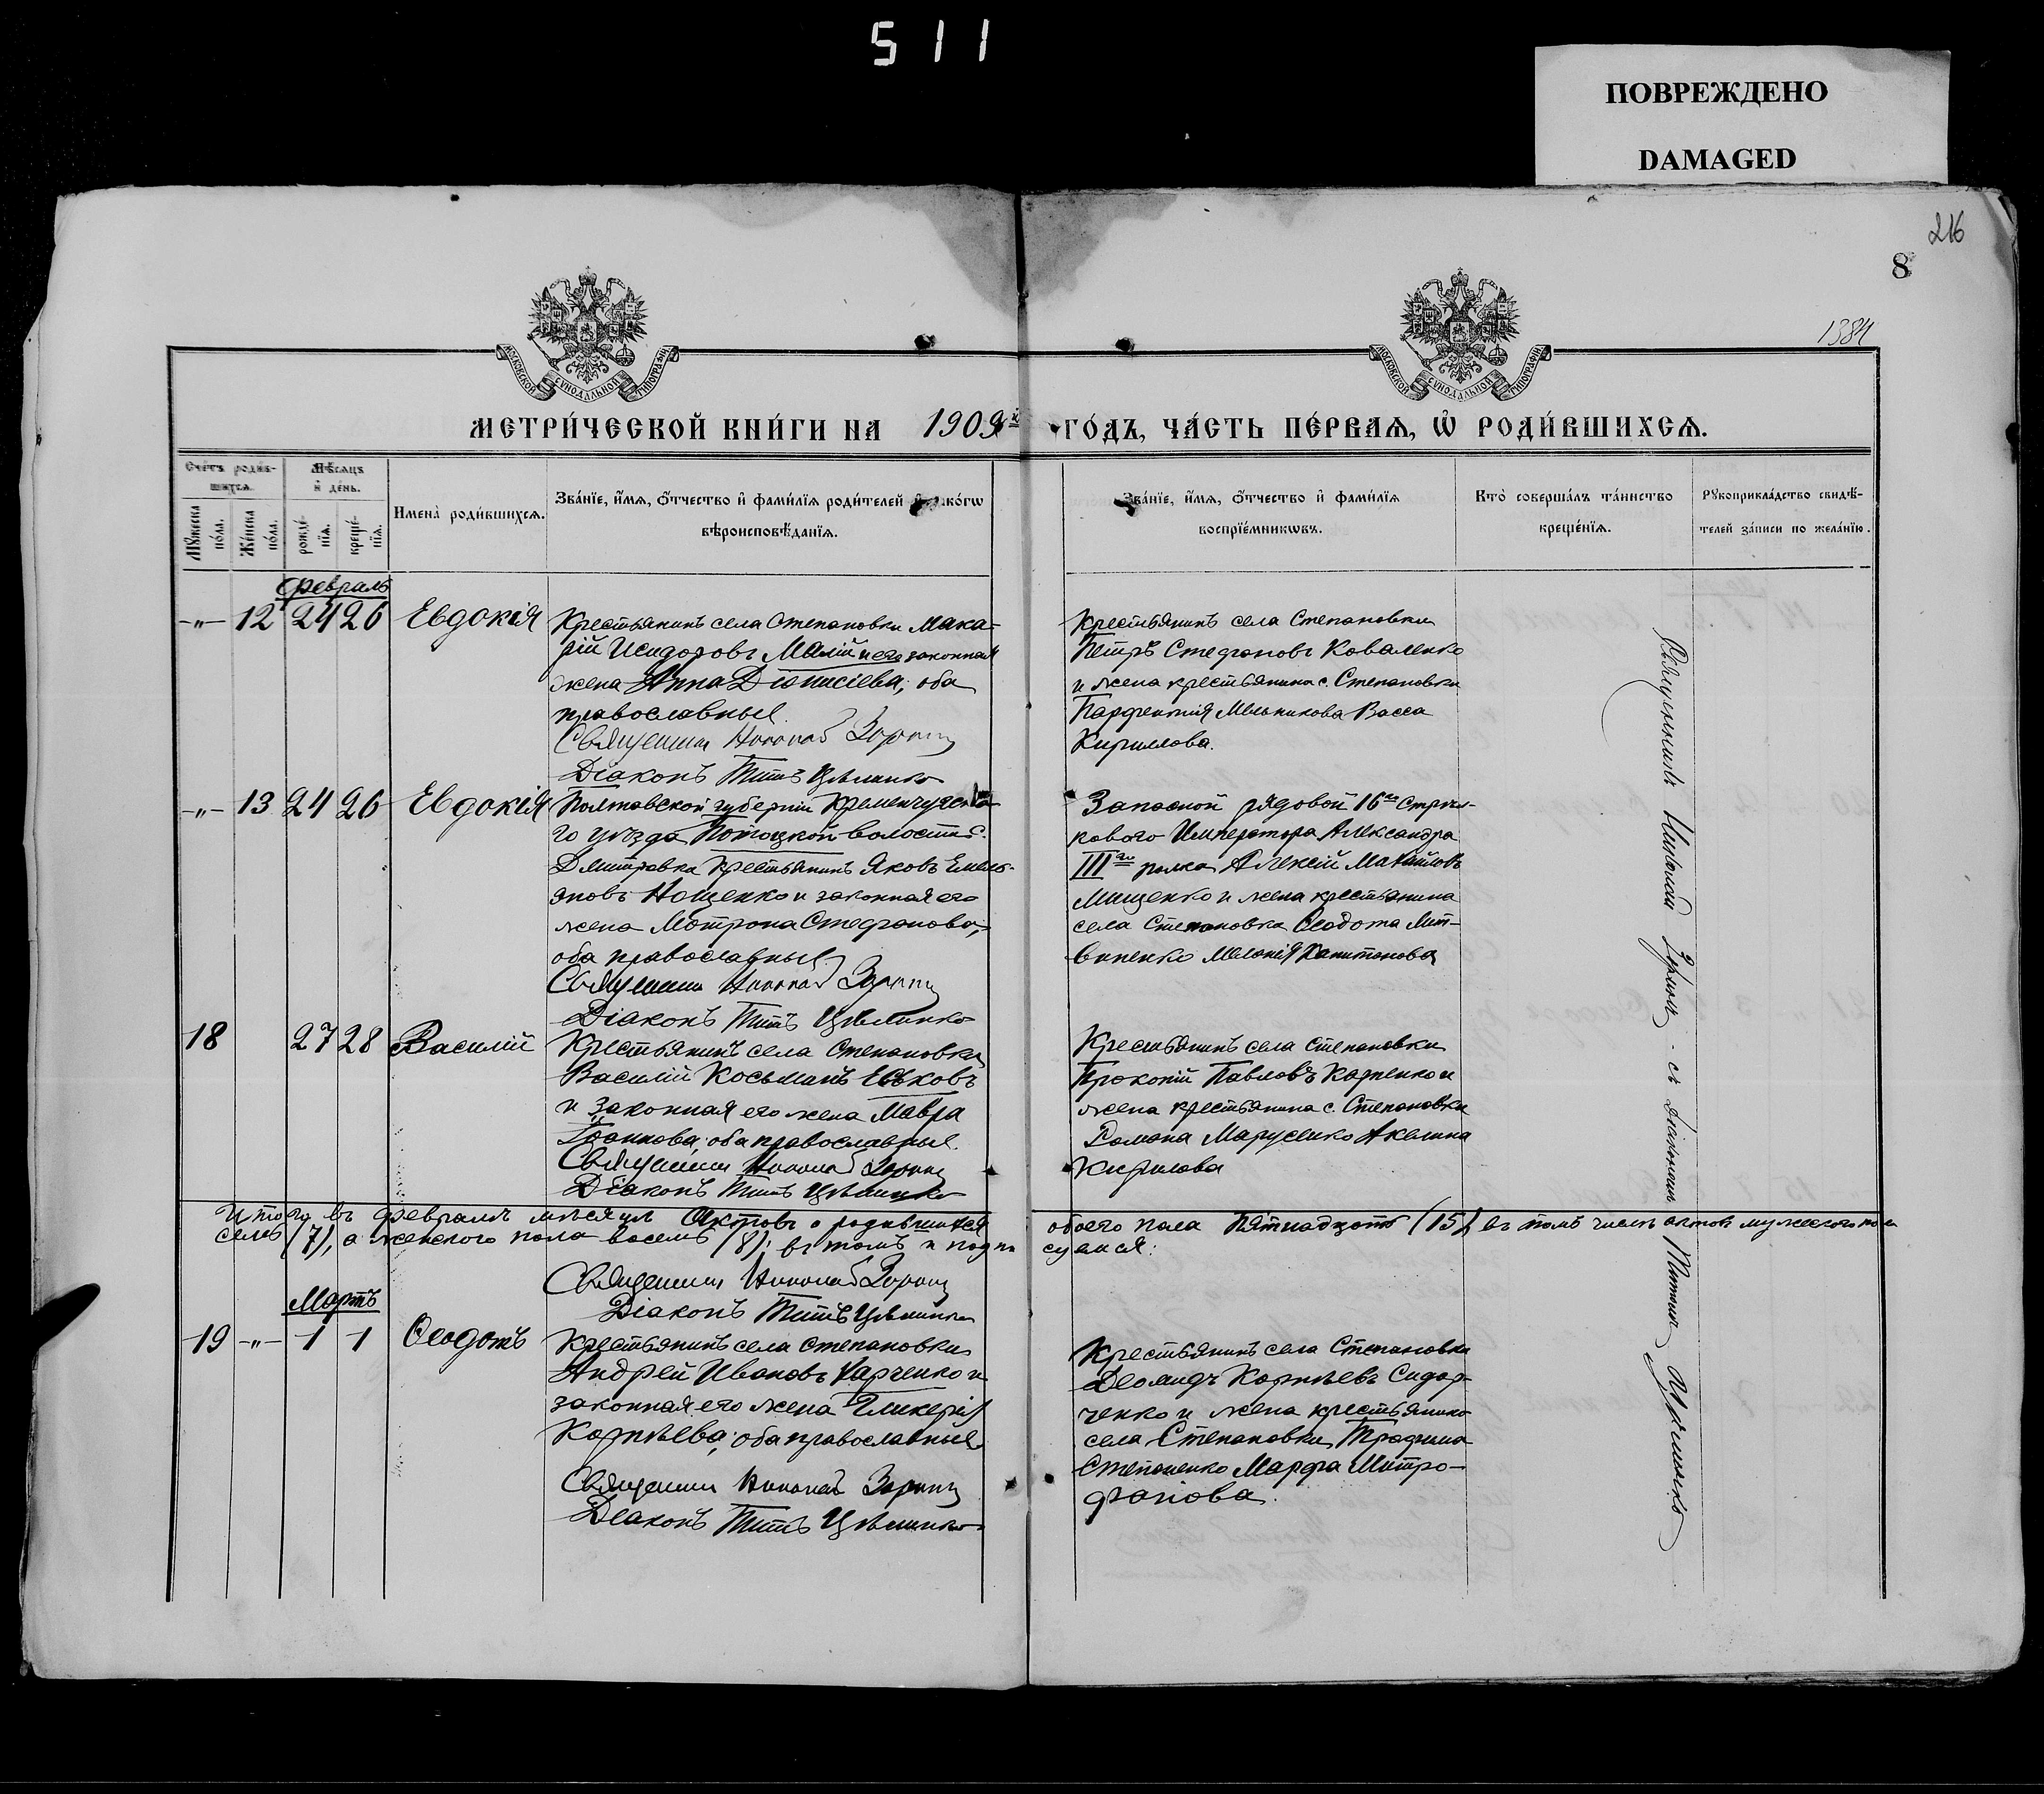 511
ПОВРЕЖДЕНО
DAMAGED
216
8
1384
МОСКОВСКОЙ СѴНОДАЛЬНОЙ ТИПОГРАФІИ
МОСКОВСКОЙ СѴНОДАЛЬНОЙ ТИПОГРАФІИ
МЕТРИ́ЧЕСКОЙ КНИ́ГИ НА 1909й ГО́ДЪ, ЧА́СТЬ ПЕ́РВАѦ, Ѡ҆ РОДИ́ВШИХСѦ.
Сче́тъ роди́в-
шихсѧ.
Мѣ́сѧцъ
и҆ де́нь.
Мꙋ́жеска
по́ла.
Же́нска
по́ла.
рожде́-
нїѧ.
креще́-
нїѧ.
Имена̀ роди́вшихсѧ.
Зва́нїе, и҆́мѧ, ѻ҆́тчество и҆ фами́лїѧ роди́телей и҆ како́гѡ
вѣроисповѣ́данїѧ.
Зва́нїе, и҆́мѧ, ѻ҆́тчество и҆ фами́лїѧ
воспрїе́мникѡвъ.
Кто̀ соверша́лъ та́инство
креще́нїѧ.
Рꙋкоприкла́дство свидѣ́-
телей за́писи по жела́нїю.
Февраль
-"- 12 24 26 Евдокія
Крестьянинъ села Степановки Мака-
рій Исидоровъ Малій и его законная
жена Анна Діонисіева; оба
православные.
Священникъ Николай Зоринъ
Діаконъ Титъ
Крестьянинъ села Степановки
Петръ Стефановъ Коваленко
и жена крестьянина с. Степановки
Парфентія Мельникова Васса
Кириллова.
-"- 13 24 26 Евдокія
Полтавской губерніи Кременчугска-
го уѣзда Потоцкой волости с.
Дмитровка крестьянинъ Яковъ Емель-
яновъ Нощенко и законная его
жена Мотрона Стефанова;
оба православные.
Священникъ Николай Зоринъ
Діаконъ Титъ
Запасной рядовой 16го Стрѣл-
кового Императора Александра
IIIго полка Алексій Михайловъ
Мищенко и жена крестьянина
села Степановки Ѳеодота Лит-
виненко Меланія Капитонова
18 27 28 Василій
Крестьянинъ села Степановки
Василій Косьминъ Евковъ
и законная его жена Мавра
Іоаннова; оба православные.
Священникъ Николай Зоринъ
Діаконъ Титъ
Крестьянинъ села Степановки
Прокопій Павловъ Карпенко и
жена крестьянина с. Степановки
Романа Марусенко Акилина
Кирилова
Итого въ февралѣ мѣсяцѣ Актовъ о родившихся обоего пола Пятнадцать (15), въ томъ числѣ актовъ мужескаго пола
семь (7), а женского пола восемь (8); въ томъ и подпи суемся:
Священникъ Николай Зоринъ
Діаконъ Титъ
Мартъ
19 -"- 1 1 Ѳеодотъ
Крестьянинъ села Степановки
Андрей Ивановъ Харченко и
законная его жена Гликерія
Корнѣева; оба православные.
Священникъ Николай Зоринъ
Діаконъ Титъ
Крестьянинъ села Степановки
Деомидъ Корнѣевъ Сидор-
ченко и жена крестьянина
села Степановки Трофима
Степаненко Марфа Митро-
фанова.
Священникъ Николай Зоринъ - съ діакономъ Титомъ